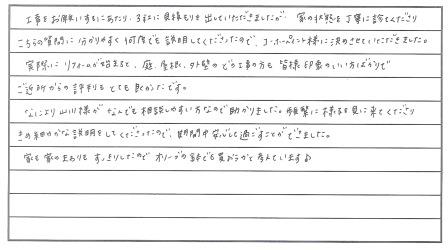 工事をお願いするにあたり、3社に見積もりを出していただきましたが、家の状態を丁寧に診てくださり
こちらの質問に分かりやすく何度でも説明してくださったので、ユーホーム様に決めさせていただきました。
実際にリフォームが始まると、庭、屋根、外壁のどの工事の方も皆様印象のいい方ばかりで
ご近所からの評判もとても良かったです。
なにより山川様がなんでも相談しやすい方なので助かりました。頻繁に様子を見に来てくださり
きめ細かな説明をしてくださったので、期間中安心して過ごすことができました。
家も家のまわりもすっきりしたのでオリーブの鉢でも買おうかと考えています♪